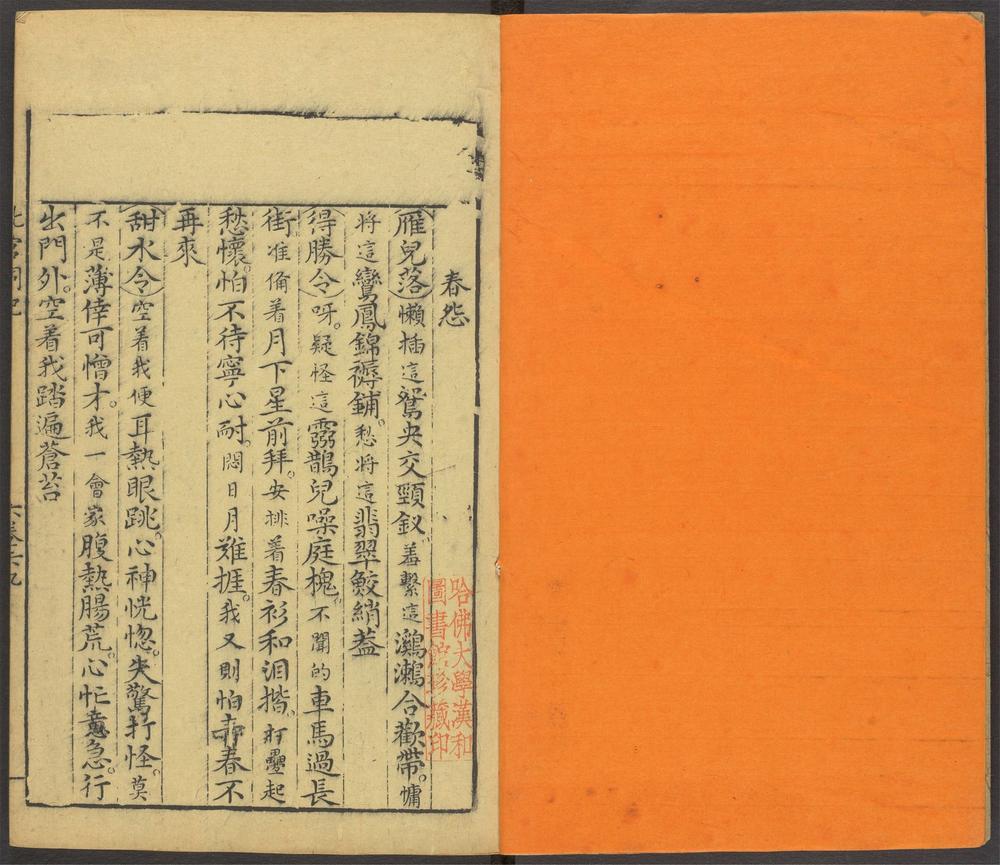 春怨
雁兒落懶插這鴛央交頸釵羞繫這鸂鶒合歡帶。慵
將這鸞鳳錦褥鋪。愁將這翡翠鮫綃蓋
得勝令呀。疑怪這靈鵲兒噪庭槐。不聞的車馬過長
街准俻着月下星前拜。安排着春衫和淚揩。打疊起
愁懷。怕不待寧心耐。悶日月難捱。我又則怕青春不
再來
甜水令空着我便耳熱眼跳。心神恍惚。失驚打怪。莫
不是薄倖可憎才。我一會家腹熱腸荒。心忙意急。行
出門外。空着我踏遍蒼苔
北宮詞紀
六卷二九
哈佛大學漢和
圖書館珍藏印